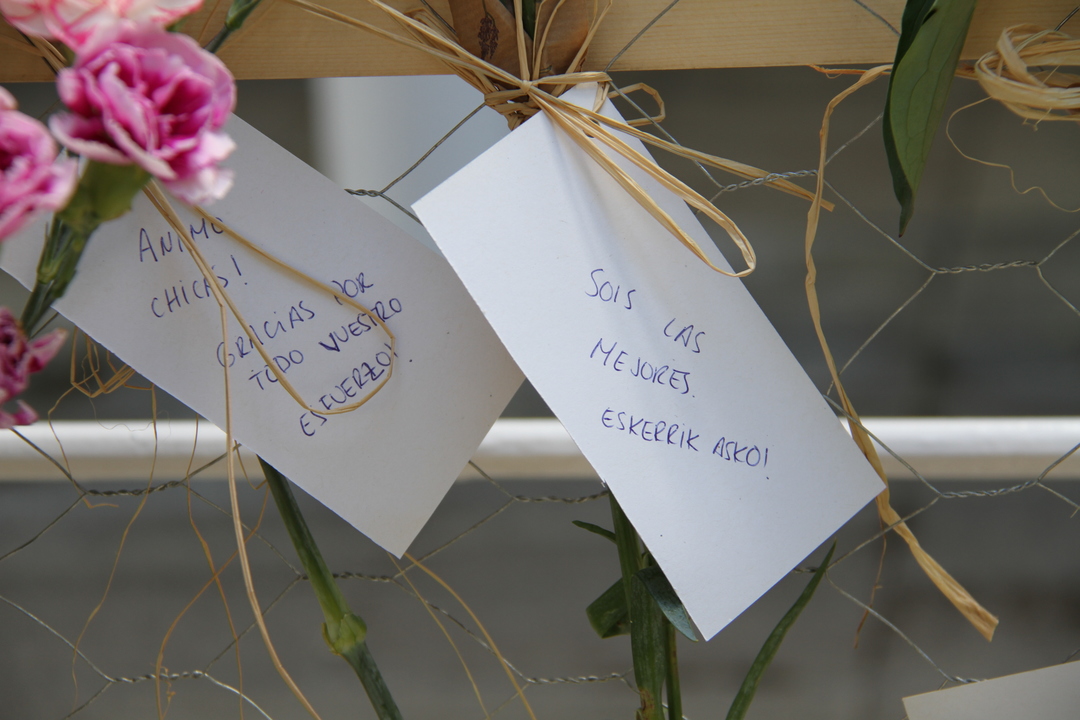 ANIMO
CHICAS!
GRACIAS POR
TODO VUESTRO
ESFUERZO!.
SOIS LAS
MEJORES.
ESKERRIK ASKO!